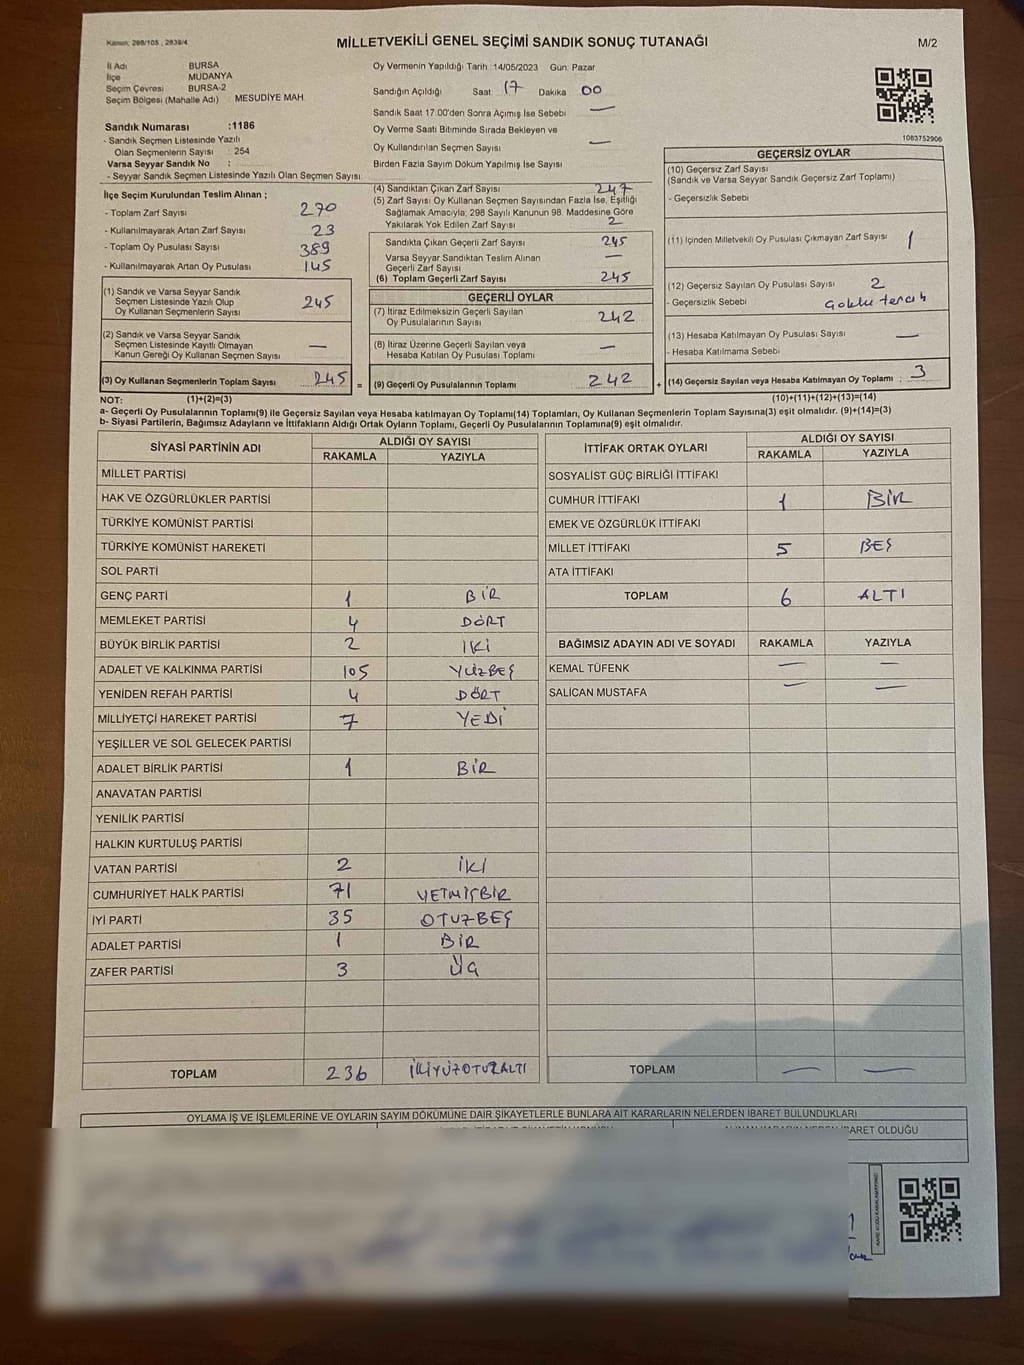 Kanun; 298/105 , 2839/4
MİLLETVEKİLİ GENEL SEÇİMİ SANDIK SONUÇ TUTANAĞI
M/2
İl Adı BURSA
İlçe MUDANYA
Seçim Çevresi BURSA-2
Seçim Bölgesi (Mahalle Adı) MESUDİYE MAH.
Sandık Numarası :1186
- Sandık Seçmen Listesinde Yazılı
Olan Seçmenlerin Sayısı : 254
Varsa Seyyar Sandık No :
- Seyyar Sandık Seçmen Listesinde Yazılı Olan Seçmen Sayısı
Oy Vermenin Yapıldığı Tarih 14/05/2023 Gün: Pazar
Sandığın Açıldığı Saat 17 Dakika 00
Sandık Saat 17.00'den Sonra Açımış İse Sebebi —
Oy Verme Saati Bitiminde Sırada Bekleyen ve
Oy Kullandırılan Seçmen Sayısı —
Birden Fazla Sayım Döküm Yapılmış İse Sayısı
1083752906
İlçe Seçim Kurulundan Teslim Alınan ;
- Toplam Zarf Sayısı 270
- Kullanılmayarak Artan Zarf Sayısı 23
- Toplam Oy Pusulası Sayısı 389
- Kullanılmayarak Artan Oy Pusulası 145
(1) Sandık ve Varsa Seyyar Sandık
Seçmen Listesinde Yazılı Olup
Oy Kullanan Seçmenlerin Sayısı 245
(2) Sandık ve Varsa Seyyar Sandık
Seçmen Listesinde Kayıtlı Olmayan
Kanun Gereği Oy Kullanan Seçmen Sayısı —
(3) Oy Kullanan Seçmenlerin Toplam Sayısı 245 =
(4) Sandıktan Çıkan Zarf Sayısı 247
(5) Zarf Sayısı Oy Kullanan Seçmen Sayısından Fazla İse, Eşitliği
Sağlamak Amacıyla, 298 Sayılı Kanunun 98. Maddesine Göre
Yakılarak Yok Edilen Zarf Sayısı 2
Sandıkta Çıkan Geçerli Zarf Sayısı 245
Varsa Seyyar Sandıktan Teslim Alınan
Geçerli Zarf Sayısı —
(6) Toplam Geçerli Zarf Sayısı 245
GEÇERLİ OYLAR
(7) İtiraz Edilmeksizin Geçerli Sayılan
Oy Pusulalarının Sayısı 242
(8) İtiraz Üzerine Geçerli Sayılan veya
Hesaba Katılan Oy Pusulası Toplamı —
(9) Geçerli Oy Pusulalarının Toplamı 242 +
GEÇERSİZ OYLAR
(10) Geçersiz Zarf Sayısı
(Sandık ve Varsa Seyyar Sandık Geçersiz Zarf Toplamı)
- Geçersizlik Sebebi
(11) İçinden Milletvekili Oy Pusulası Çıkmayan Zarf Sayısı 1
(12) Geçersiz Sayılan Oy Pusulası Sayısı 2
- Geçersizlik Sebebi Çoklu tercih
(13) Hesaba Katılmayan Oy Pusulası Sayısı —
- Hesaba Katılmama Sebebi
(14) Geçersiz Sayılan veya Hesaba Katılmayan Oy Toplamı : 3
NOT: (1)+(2)=(3)
(10)+(11)+(12)+(13)=(14)
a- Geçerli Oy Pusulalarının Toplamı(9) ile Geçersiz Sayılan veya Hesaba katılmayan Oy Toplamı(14) Toplamları, Oy Kullanan Seçmenlerin Toplam Sayısına(3) eşit olmalıdır. (9)+(14)=(3)
b- Siyasi Partilerin, Bağımsız Adayların ve İttifakların Aldığı Ortak Oyların Toplamı, Geçerli Oy Pusulalarının Toplamına(9) eşit olmalıdır.
SİYASİ PARTİNİN ADI ALDIĞI OY SAYISI
RAKAMLA YAZIYLA
MİLLET PARTİSİ
HAK VE ÖZGÜRLÜKLER PARTİSİ
TÜRKİYE KOMÜNİST PARTİSİ
TÜRKİYE KOMÜNİST HAREKETİ
SOL PARTİ
GENÇ PARTİ 1 BİR
MEMLEKET PARTİSİ 4 DÖRT
BÜYÜK BİRLİK PARTİSİ 2 İKİ
ADALET VE KALKINMA PARTİSİ 105 YÜZBEŞ
YENİDEN REFAH PARTİSİ 4 DÖRT
MİLLİYETÇİ HAREKET PARTİSİ 7 YEDİ
YEŞİLLER VE SOL GELECEK PARTİSİ
ADALET BİRLİK PARTİSİ 1 BİR
ANAVATAN PARTİSİ
YENİLİK PARTİSİ
HALKIN KURTULUŞ PARTİSİ
VATAN PARTİSİ 2 İKİ
CUMHURİYET HALK PARTİSİ 71 YETMİŞBİR
İYİ PARTİ 35 OTUZBEŞ
ADALET PARTİSİ 1 BİR
ZAFER PARTİSİ 3 ÜÇ
TOPLAM 236 İKİYÜZOTUZALTI
İTTİFAK ORTAK OYLARI ALDIĞI OY SAYISI
RAKAMLA YAZIYLA
SOSYALİST GÜÇ BİRLİĞİ İTTİFAKI
CUMHUR İTTİFAKI 1 BİR
EMEK VE ÖZGÜRLÜK İTTİFAKI
MİLLET İTTİFAKI 5 BEŞ
ATA İTTİFAKI
TOPLAM 6 ALTI
BAĞIMSIZ ADAYIN ADI VE SOYADI RAKAMLA YAZIYLA
KEMAL TÜFENK — —
SALİCAN MUSTAFA — —
TOPLAM — —
OYLAMA İŞ VE İŞLEMLERİNE VE OYLARIN SAYIM DÖKÜMÜNE DAİR ŞİKAYETLERLE BUNLARA AİT KARARLARIN NELERDEN İBARET BULUNDUKLARI
İBARET OLDUĞU